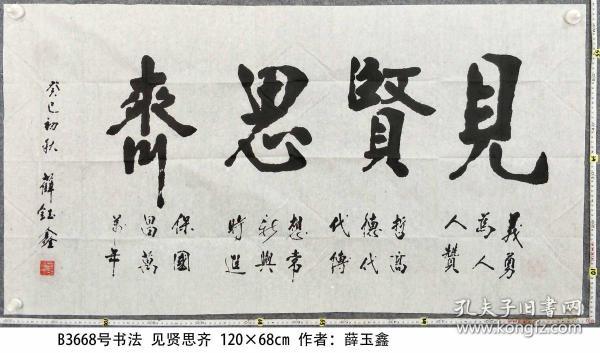 見賢思齊
義勇
為人
人贊
哲高
德代
代傳
想常
新興
時進
保國
昌萬
年
癸巳初秋 薛鈺鑫
孔夫子旧书网
www.kongfz.com
B3668号书法 见贤思齐 120×68cm 作者：薛玉鑫